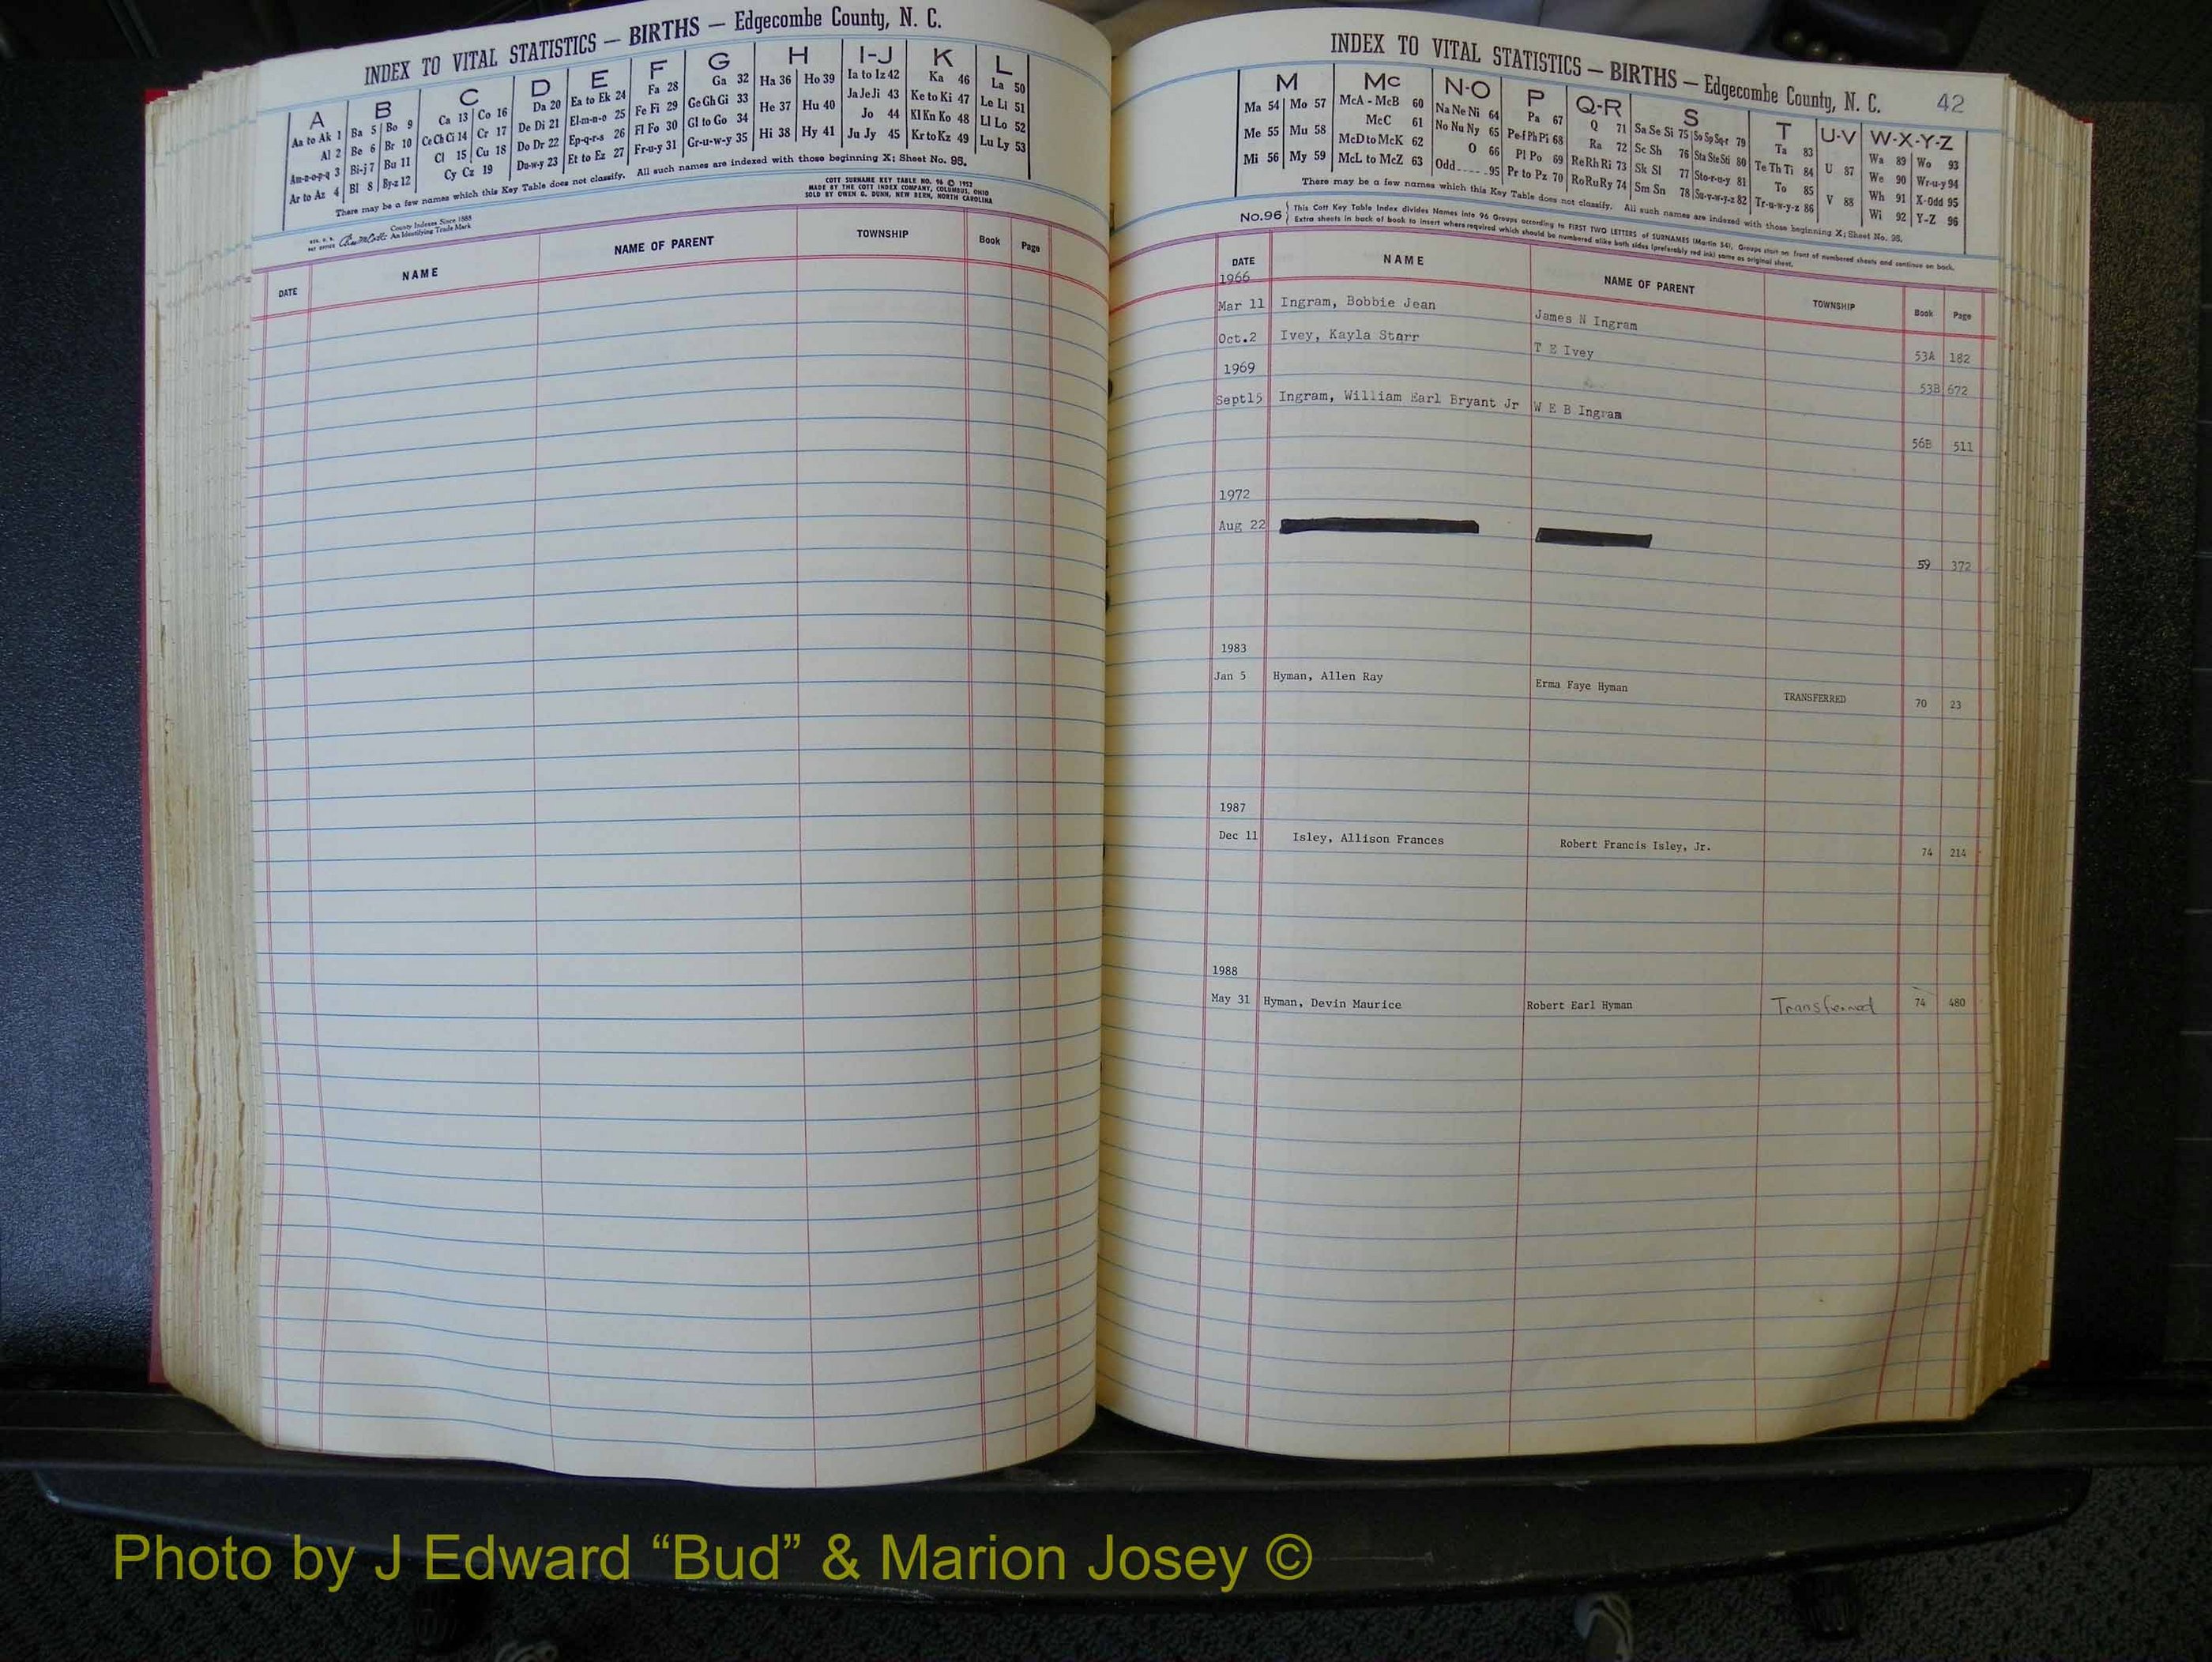 INDEX TO VITAL STATISTICS — BIRTHS — Edgecombe County, N. C.
A B C D E F G H I-J K L
Aa to Ak 1 Ba 5 Bo 9 Ca 13 Co 16 Da 20 Ea to Ek 24 Fa 28 Ga 32 Ha 36 Ho 39 Ia to Iz 42 Ka 46 La 50
Al 2 Be 6 Br 10 Ce Ch Ci 14 Cr 17 De Di 21 El-m-n-o 25 Fe Fi 29 Ge Gh Gi 33 He 37 Hu 40 Ja Je Ji 43 Ke to Ki 47 Le Li 51
Am-n-o-p-q 3 Bi-j 7 Bu 11 Cl 15 Cu 18 Do Dr 22 Ep-q-r-s 26 Fl Fo 30 Gl to Go 34 Hi 38 Hy 41 Jo 44 Kl Kn Ko 48 Ll Lo 52
Ar to Az 4 Bl 8 By-z 12 Cy Cz 19 Du-w-y 23 Et to Ez 27 Fr-u-y 31 Gr-u-w-y 35 Ju Jy 45 Kr to Kz 49 Lu Ly 53
There may be a few names which this Key Table does not classify. All such names are indexed with those beginning X; Sheet No. 95.
COTT SURNAME KEY TABLE NO. 96 © 1952
MADE BY THE COTT INDEX COMPANY, COLUMBUS, OHIO
SOLD BY OWEN G. DUNN, NEW BERN, NORTH CAROLINA
County Indexes Since 1888
An Identifying Trade Mark
DATE NAME NAME OF PARENT TOWNSHIP Book Page
INDEX TO VITAL STATISTICS — BIRTHS — Edgecombe County, N. C. 42
M Mc N-O P Q-R S T U-V W-X-Y-Z
Ma 54 Mo 57 McA - McB 60 Na Ne Ni 64 Pa 67 Q 71 Sa Se Si 75 So Sp Sq-r 79 Ta 83 U 87 Wa 89 Wo 93
Me 55 Mu 58 McC 61 No Nu Ny 65 Pe-f Ph Pi 68 Ra 72 Sc Sh 76 Sta Ste Sti 80 Te Th Ti 84 V 88 We 90 Wr-u-y 94
Mi 56 My 59 McD to McK 62 O 66 Pl Po 69 Re Rh Ri 73 Sk Sl 77 Sto-r-u-y 81 To 85 Wh 91 X-Odd 95
McL to McZ 63 Odd 95 Pr to Pz 70 Ro Ru Ry 74 Sm Sn 78 Su-v-w-y-z 82 Tr-u-w-y-z 86 Wi 92 Y-Z 96
There may be a few names which this Key Table does not classify. All such names are indexed with those beginning X; Sheet No. 95.
No.96 { This Cott Key Table Index divides Names into 96 Groups according to FIRST TWO LETTERS of SURNAMES (Martin 54). Groups start on front of numbered sheets and continue on back.
Extra sheets in back of book to insert where required which should be numbered alike both sides (preferably red ink) same as original sheet.
DATE NAME NAME OF PARENT TOWNSHIP Book Page
1966
Mar 11 Ingram, Bobbie Jean James N Ingram 53A 182
Oct.2 Ivey, Kayla Starr T E Ivey 53B 672
1969
Sept15 Ingram, William Earl Bryant Jr W E B Ingram 56B 511
1972
Aug 22 59 372
1983
Jan 5 Hyman, Allen Ray Erma Faye Hyman TRANSFERRED 70 23
1987
Dec 11 Isley, Allison Frances Robert Francis Isley, Jr. 74 214
1988
May 31 Hyman, Devin Maurice Robert Earl Hyman Transferred 74 480
Photo by J Edward “Bud” & Marion Josey ©